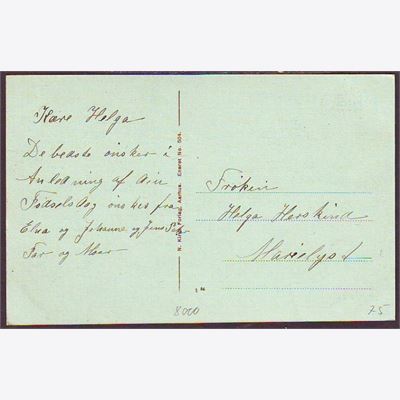 Kære Helga
De bedste ønsker i
Anledning af din
Fødselsdag ønskes fra
Elna og Johanne og Jens
Far og Moer
Frøken
Helga Horskind
Marielyst
N. K. Forlag. Aarhus. Eneret No. 504.
8000
75